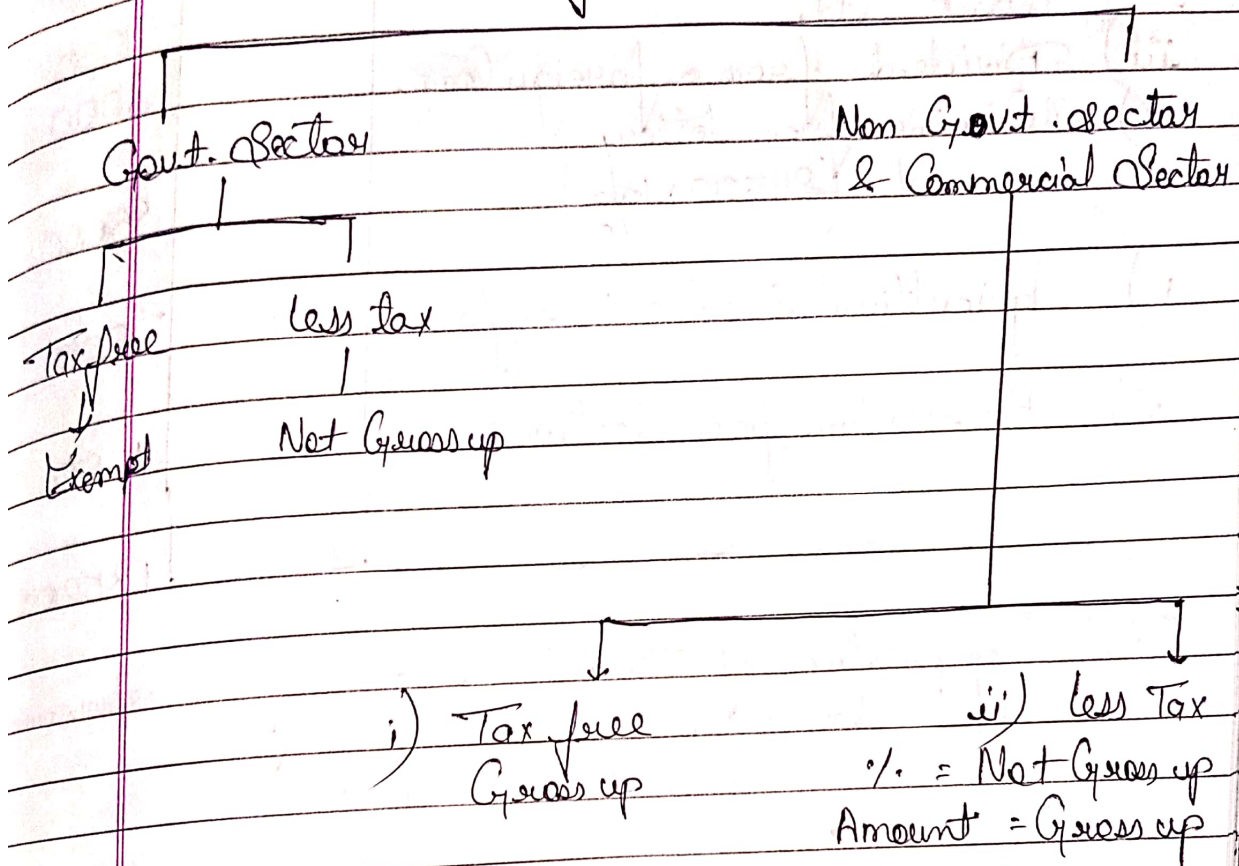 Govt. Sector
Non Govt. Sector
& Commercial Sector
Tax free
less tax
Exempt
Not Gross up
i) Tax free
Gross up
ii) less Tax
% = Not Gross up
Amount = Gross up